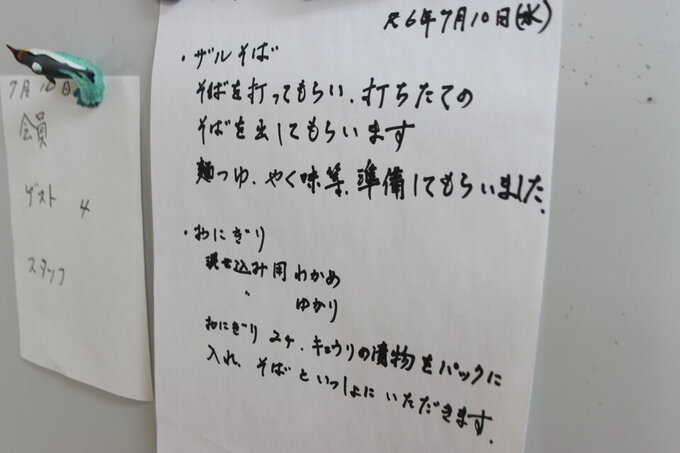 R6年7月10日(水)
・ザルそば
そばを打ってもらい、打ちたての
そばを出してもらいます
麺つゆ、やく味等、準備してもらいました。
・おにぎり
混ぜ込み用わかめ
〃 ゆかり
おにぎり 2ケ、キュウリの漬物をパックに
入れ、そばといっしょにいただきます。
7月10日
会員
ゲスト 4
スタッフ